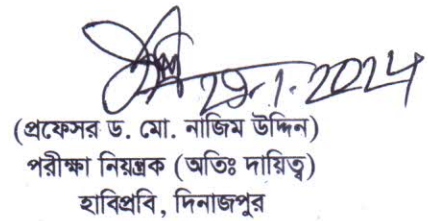 29-1-2024
(প্রফেসর ড. মো. নাজিম উদ্দিন)
পরীক্ষা নিয়ন্ত্রক (অতিঃ দায়িত্ব)
হাবিপ্রবি, দিনাজপুর